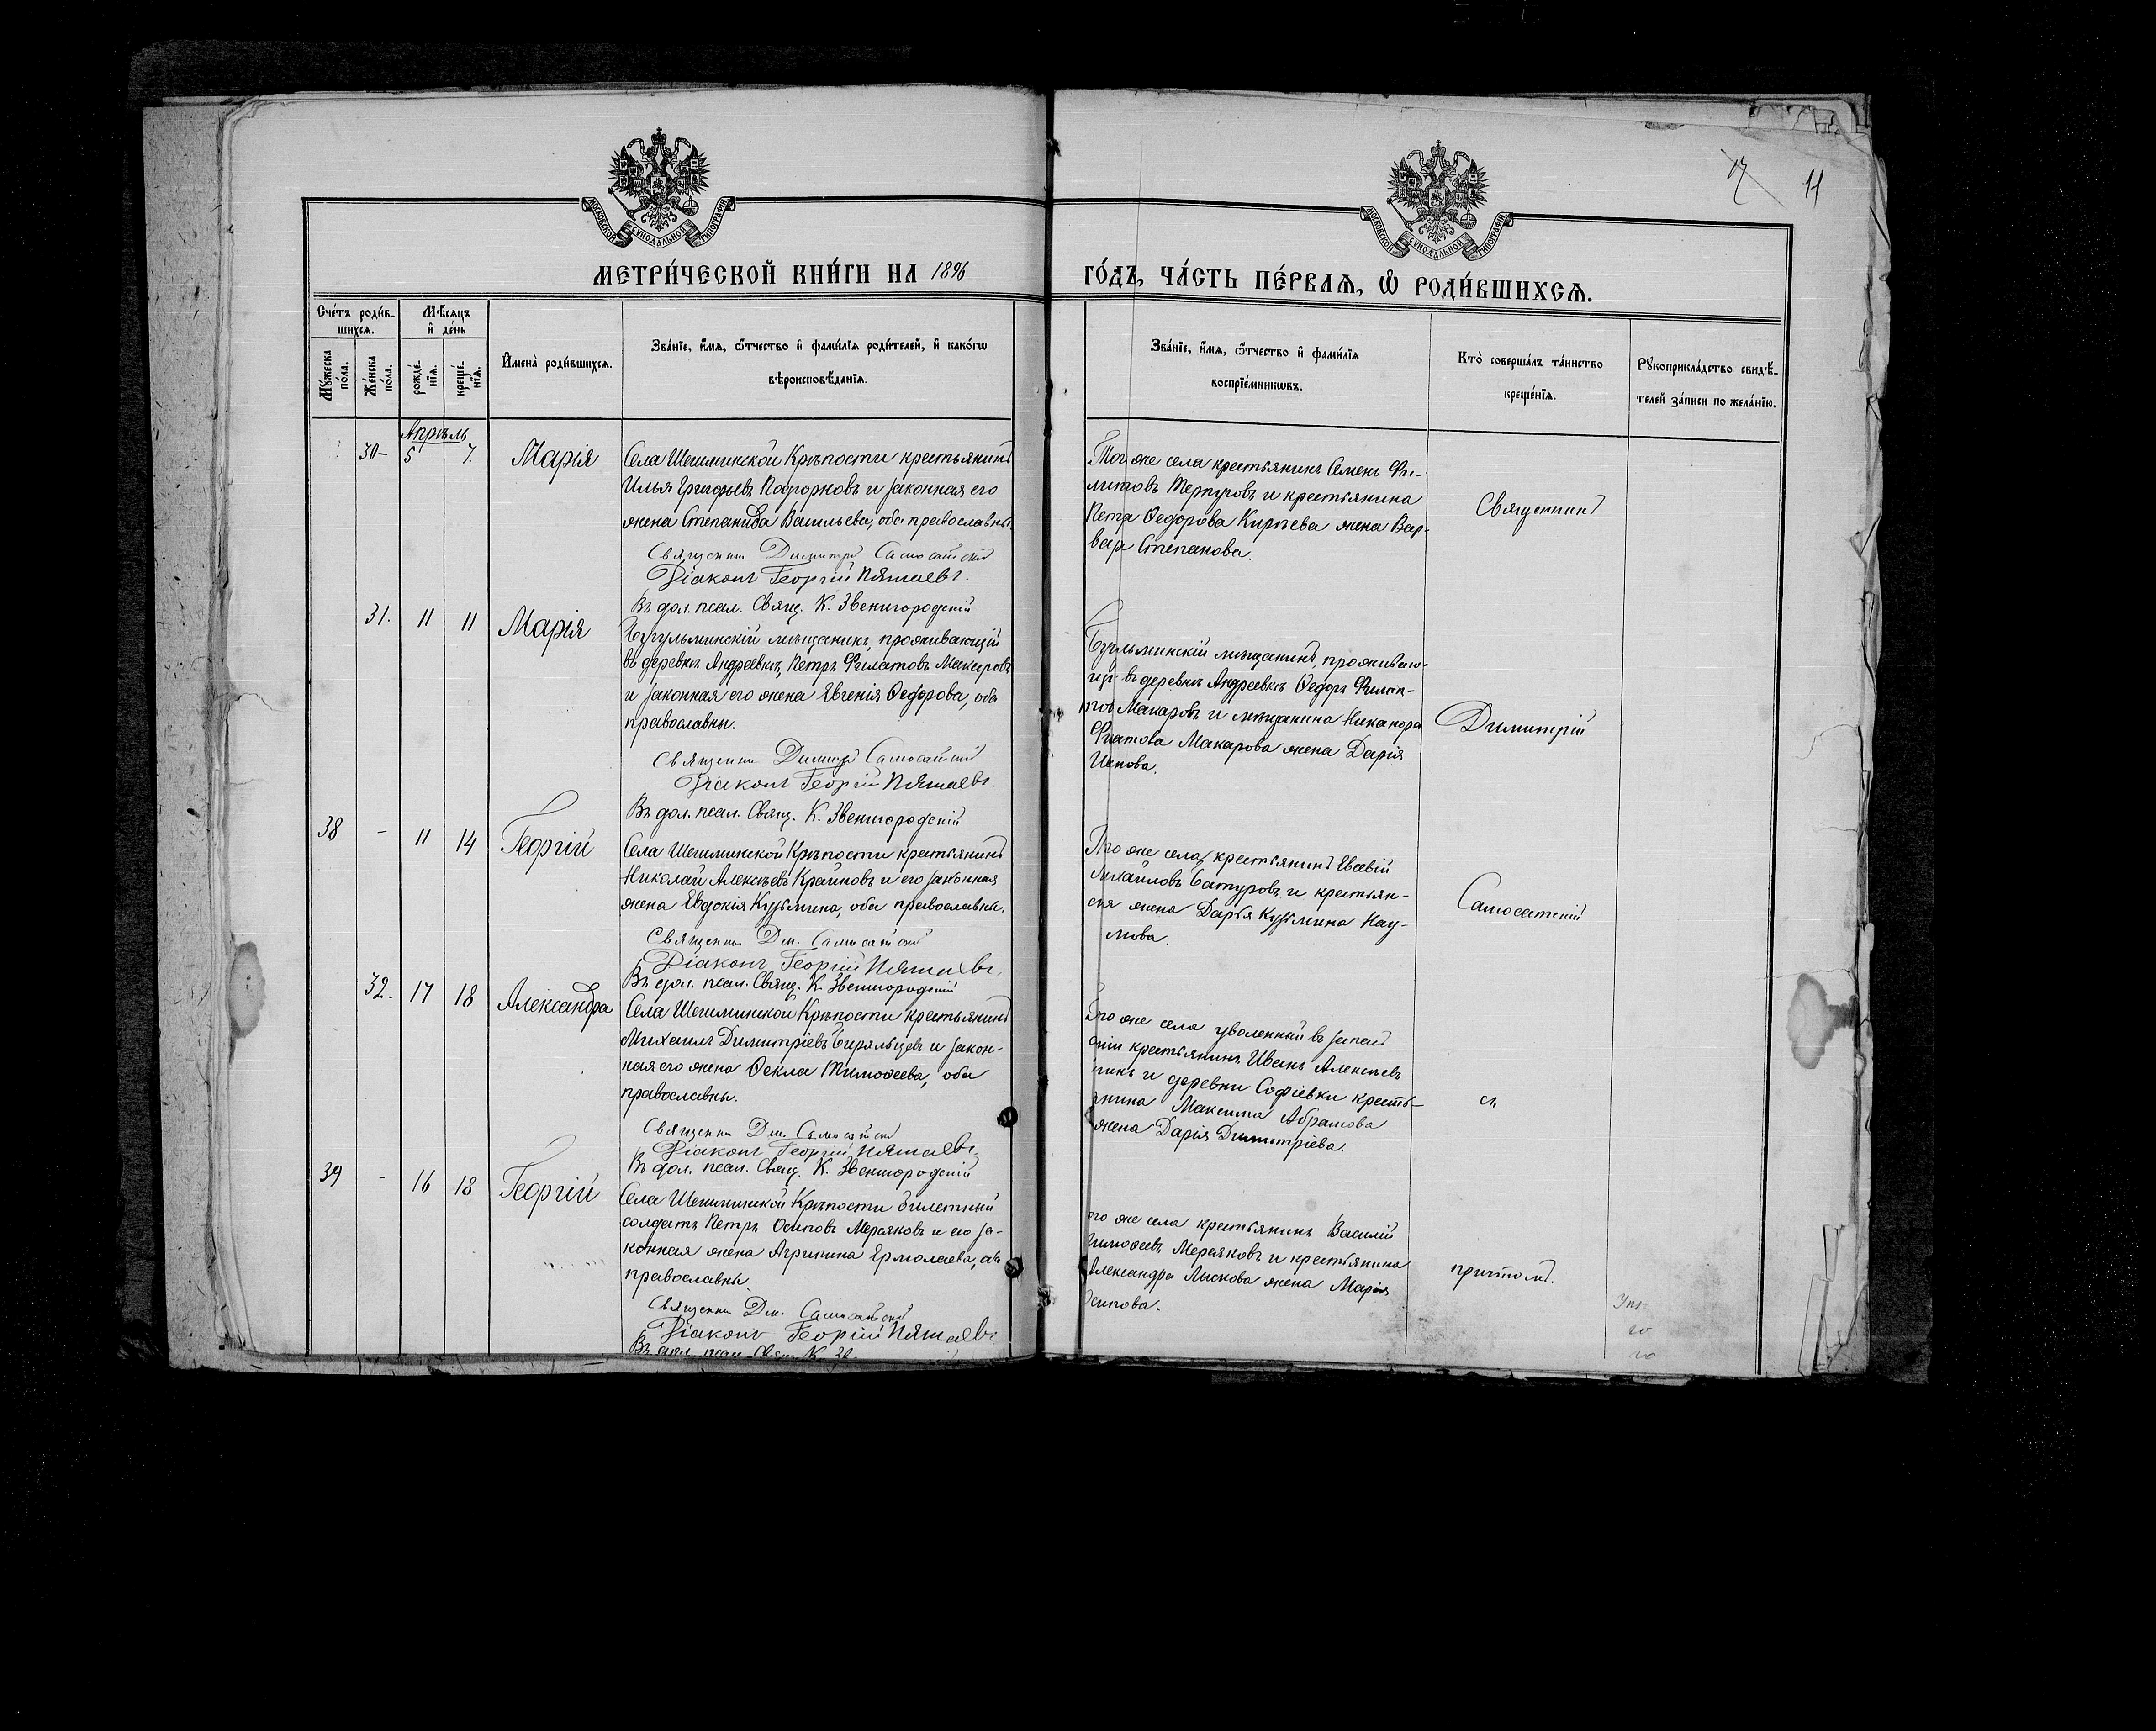 17 11
МОСКОВСКОЙ СѴНОДАЛЬНОЙ ТИПОГРАФІИ
МОСКОВСКОЙ СѴНОДАЛЬНОЙ ТИПОГРАФІИ
МЕТРИ́ЧЕСКОЙ КНИ́ГИ НА 1896
ГО́ДЪ, ЧА́СТЬ ПЕ́РВАѦ, Ѡ҆ РОДИ́ВШИХСѦ.
Сче́тъ роди́в-
шихсѧ.
Мꙋ́жеска
по́ла.
Же́нска
по́ла.
Мѣ́сѧцъ
и҆ де́нь
рожде́-
нїѧ.
креще́-
нїѧ.
И҆мена̀ роди́вшихсѧ.
Зва́нїе, и҆́мѧ, ѻ҆́тчество и҆ фами́лїѧ роди́телей, и҆ како́гѡ
вѣроисповѣ́данїѧ.
Зва́нїе, и҆́мѧ, ѻ҆́тчество и҆ фами́лїѧ
воспрїе́мникѡвъ.
Кто̀ соверша́лъ та́инство
креще́нїѧ.
Рꙋкоприкла́дство свидѣ́-
телей за́писи по жела́нїю.
Апрѣль
30- 5 7. Марія
Села Шешминской Крѣпости крестьянинъ
Илья Григорьевъ и законная его
жена Степанида Васильева, оба православны
Священникъ Димитрій Самосатскій
Діаконъ Георгій
Въ дол. псал. Свящ. К. Звенигородскій
Того же села крестьянинъ Семенъ Фи-
липовъ и крестьянина
Петра Ѳедорова жена Вар-
вара Степанова.
Священникъ
31. 11 11 Марія
Бугульминскій мѣщанинъ, проживающій
въ деревнѣ Андреевкѣ, Петръ Филатовъ Макаровъ
и законная его жена Евгенія Ѳедорова, оба
православны.
Священникъ Димитрій Самосатскій
Діаконъ Георгій
Въ дол. псал. Свящ. К. Звенигородскій
Бугульминскій мѣщанинъ, проживаю-
въ деревнѣ Андреевкѣ Ѳедоръ
Макаровъ и мѣщанина Никандра
Филатова Макарова жена Дарія
Димитрій
38 - 11 14 Георгій
Села Шешминской Крѣпости крестьянинъ
Николай Алексѣевъ Крайновъ и его законная
жена Евдокія Кузьмина, оба православны.
Священникъ Дим. Самосатскій
Діаконъ Георгій
Въ дол. псал. Свящ. К. Звенигородскій
Того же села крестьянинъ Евсевій
Михайловъ Батуровъ и крестьян-
ская жена Дарья Кузьмина Нау-
мова.
Самосатскій
32. 17 18 Александра
Села Шешминской Крѣпости крестьянинъ
Михаилъ Димитріевъ и закон-
ная его жена Ѳекла Тимоѳеева, оба
православны.
Священникъ Дим. Самосатскій
Діаконъ Георгій
Въ дол. псал. Свящ. К. Звенигородскій
Того же села уволенный въ запасъ
арміи крестьянинъ Иванъ Алексѣевъ
и деревни Софіевки кресть-
янина Максима Абрамова
жена Дарія Димитріева.
съ
39 - 16 18 Георгій
Села Шешминской Крѣпости билетный
солдатъ Петръ Осиповъ Мерзляковъ и его за-
конная жена Агрипина Ермолаева, оба
православны
Священникъ Дим. Самосатскій
Діаконъ Георгій
Въ дол. псал. Свящ. К.
Того же села крестьянинъ Василій
Тимоѳеевъ Мерзляковъ и крестьянина
Александра Лыскова жена Марія
Осипова.
причтомъ.